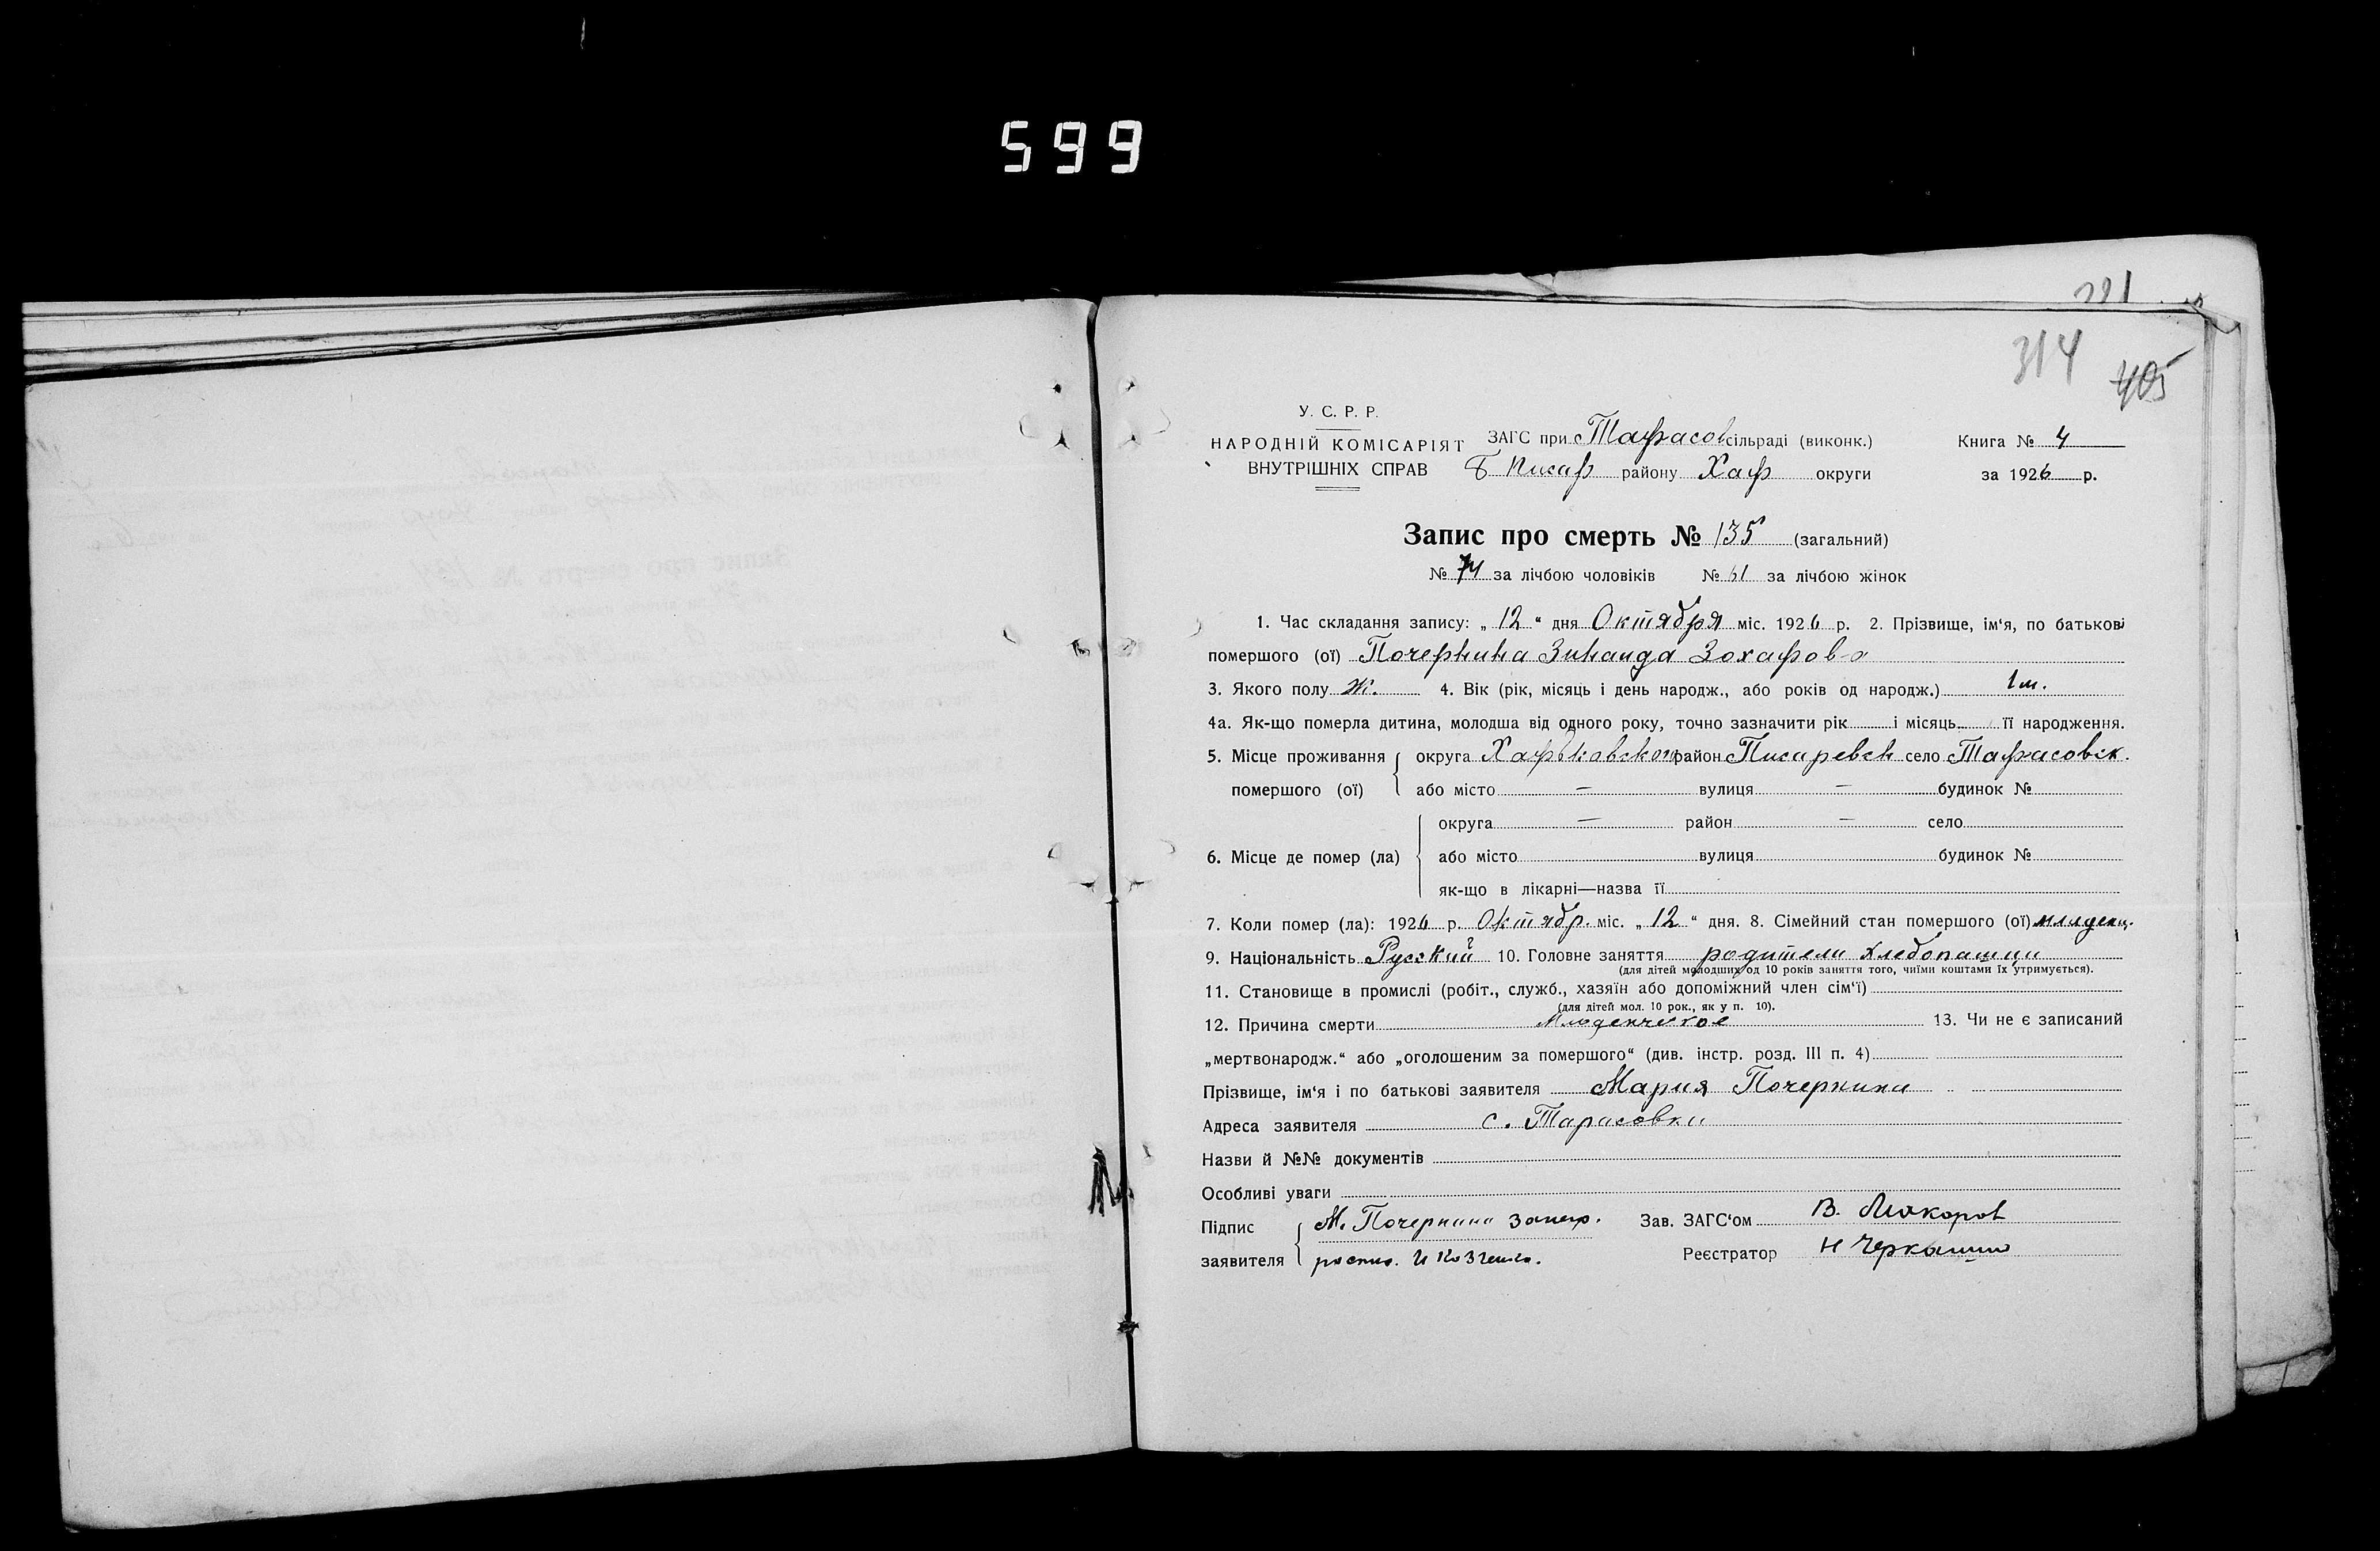 599
314 405
У. С. Р. Р.
НАРОДНІЙ КОМІСАРІЯТ ЗАГС при Тарасов сільраді (виконк.) Книга № 4
ВНУТРІШНІХ СПРАВ Б Писар району Хар округи за 1926 р.
Запис про смерть № 135 (загальний)
№ 74 за лічбою чоловіків № 61 за лічбою жінок
1. Час складання запису: „ 12 “ дня Октября міс. 1926 р. 2. Прізвище, ім‘я, по батькові
помершого (ої) Почернина Зинаида Зохарова
3. Якого полу Ж. 4. Вік (рік, місяць і день народж., або років од народж.) 1 м.
4а. Як-що померла дитина, молодша від одного року, точно зазначити рік і місяць її народження.
5. Місце проживання округа Харьковской район Писаревск село Тарасовск.
помершого (ої) або місто — вулиця — будинок №
округа — район — село
6. Місце де помер (ла) або місто вулиця будинок №
як-що в лікарні—назва її
7. Коли помер (ла): 1926 р. Октябр. міс. „ 12 “ дня. 8. Сімейний стан помершого (ої) младенц.
9. Національність Русский 10. Головне заняття родители хлебопашци
(для дітей молодших од 10 років заняття того, чиїми коштами їх утримується).
11. Становище в промислі (робіт., служб., хазяїн або допоміжний член сім‘ї)
(для дітей мол. 10 рок., як у п. 10).
12. Причина смерти Младенческое 13. Чи не є записаний
„мертвонародж.“ або „оголошеним за помершого“ (див. інстр. розд. III п. 4)
Прізвище, ім‘я і по батькові заявителя Мария Почернина
Адреса заявителя с. Тарасовка
Назви й №№ документів
Особливі уваги
Підпис М. Почернина Зав. ЗАГС‘ом В.
заявителя Реєстратор Н Черкашин